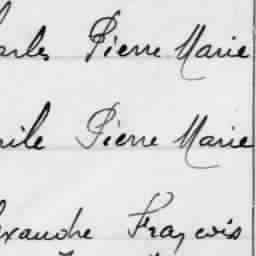 arles Pierre Marie
ile Pierre Marie
exandre François